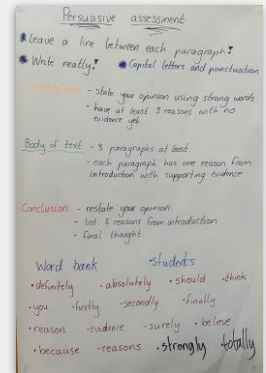 Persuasive assessment
* Leave a line between each paragraph!
* Write neatly! * Capital letters and punctuation
Introduction - state your opinion using strong words
- have at least 3 reasons with no
evidence yet
Body of text - 3 paragraphs at least
- each paragraph has one reason from
introduction with supporting evidence
Conclusion - restate your opinion.
- list 3 reasons from introduction
- final thought.
Word bank Students
• definitely • absolutely • should • think
• you • firstly • secondly • finally
• reason • evidence • surely • believe
• because • reasons • strongly • totally